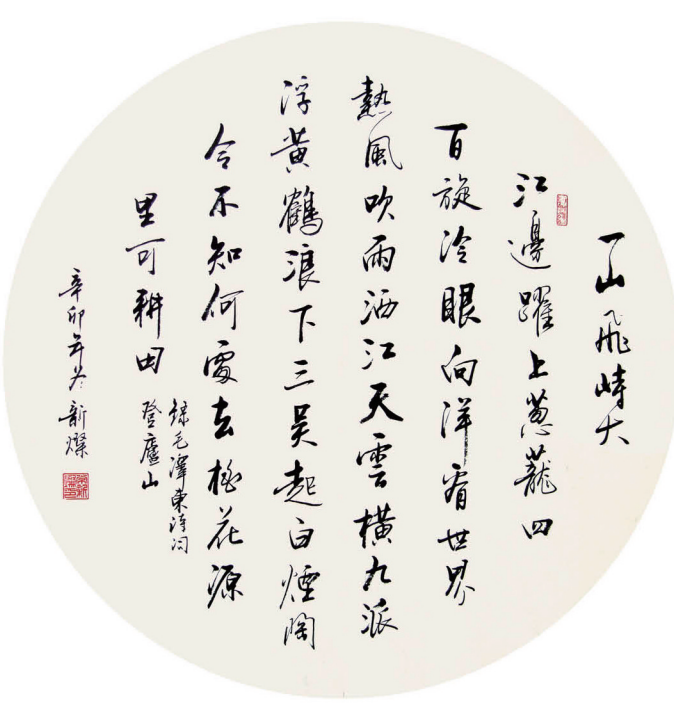 一山飛峙大
江邊躍上葱蘢四
百旋冷眼向洋看世界
熱風吹雨洒江天雲橫九派
浮黃鶴浪下三吴起白煙陶
令不知何處去桃花源
里可耕田
錄毛澤東詩词
登廬山
辛卯年冬新燦